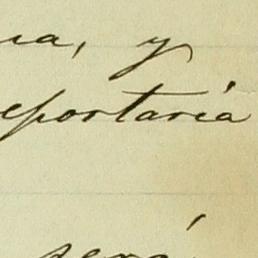 na, y
eportaría
será